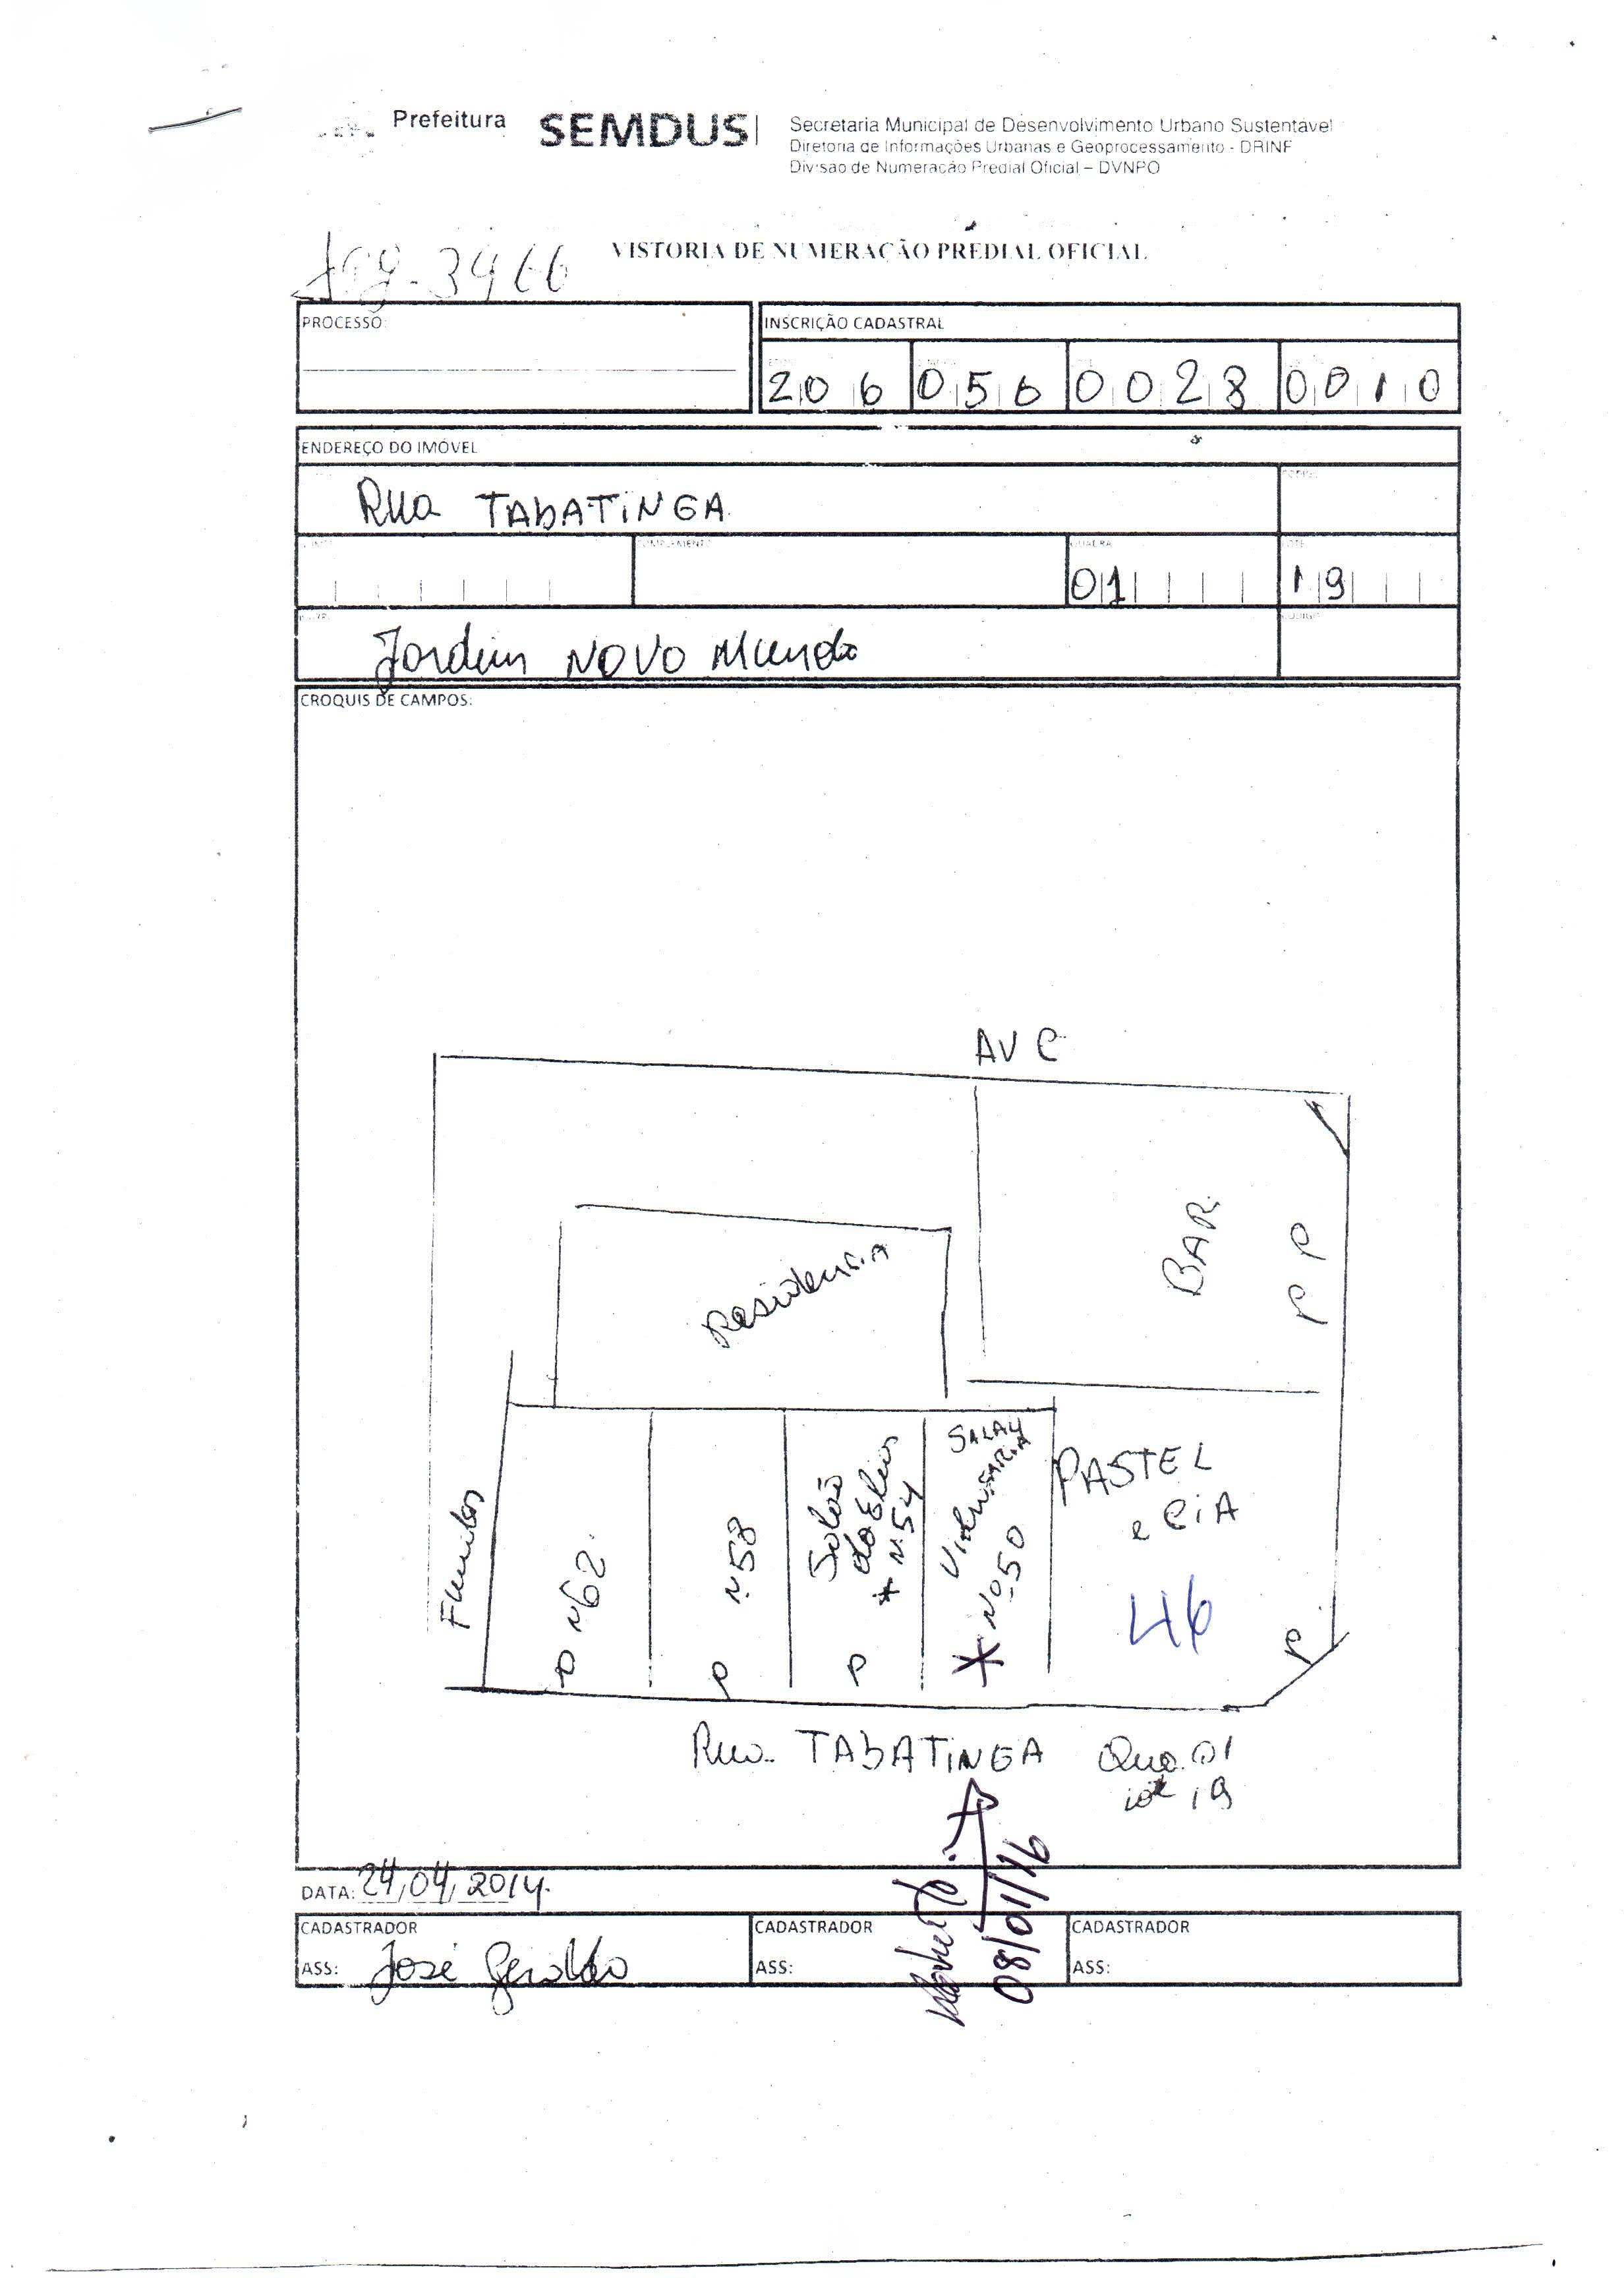 Prefeitura
SEMDUS
Secretaria Municipal de Desenvolvimento Urbano Sustentável
Diretoria de Informações Urbanas e Geoprocessamento - DRINF
Divisão de Numeração Predial Oficial – DVNPO
VISTORIA DE NUMERAÇÃO PREDIAL OFICIAL
3466
PROCESSO:
INSCRIÇÃO CADASTRAL
206 056 0028 0010
ENDEREÇO DO IMÓVEL
Rua TABATINGA
COMPLEMENTO
QUADRA
LOTE
01
19
Jardim NOVO Mundo
CROQUIS DE CAMPOS:
AV C
BAR
P P
Residencia
SALA 4
Vidraçaria
Nº 50
Salão
N 54
N 58
N 62
PASTEL
e CIA
46
P
P
P
P
Rua TABATINGA
Qua. 01
lot 19
DATA: 24/04/2014
08/01/16
CADASTRADOR
ASS: José Geraldo
CADASTRADOR
ASS:
CADASTRADOR
ASS: